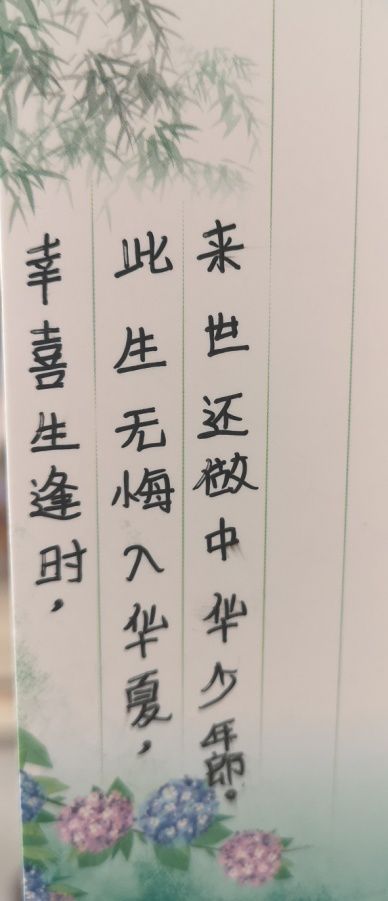 幸喜生逢时，
此生无悔入华夏，
来世还做中华少年郎。